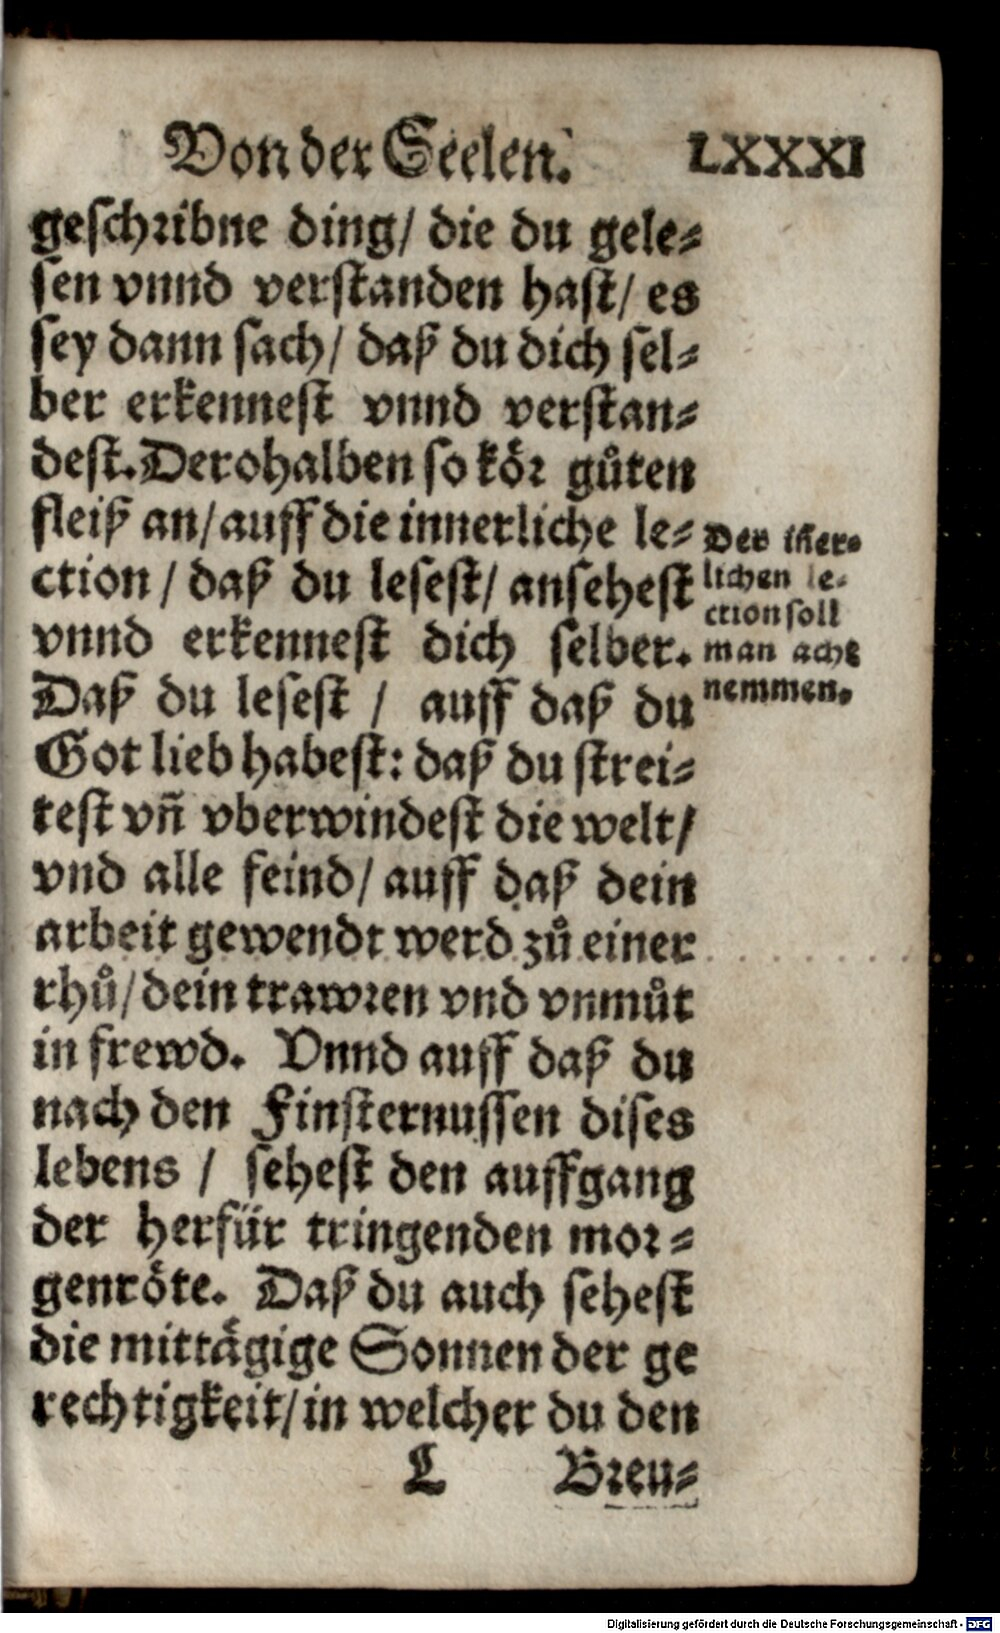 Von der Seelen. LXXXI
geschribne ding/ die du gele⸗
sen vnnd verstanden hast/ es
sey dann sach/ daß du dich sel⸗
ber erkennest vnnd verstan⸗
dest. Derohalben so kör gůten
fleiß an/ auff die innerliche le⸗
ction/ daß du lesest/ ansehest
vnnd erkennest dich selber.
Daß du lesest / auff daß du
Got lieb habest: daß du strei⸗
test vñ vberwindest die welt/
vnd alle feind/ auff daß dein
arbeit gewendt werd zů einer
rhů/ dein trawren vnd vnmůt
in frewd. Vnnd auff daß du
nach den Finsternussen dises
lebens / sehest den auffgang
der herfür tringenden mor⸗
genröte. Daß du auch sehest
die mittägige Sonnen der ge
rechtigkeit/ in welcher du den
L Breu⸗
Der iñer⸗
lichen le⸗
ction soll
man acht
nemmen.
Digitalisierung gefördert durch die Deutsche Forschungsgemeinschaft - DFG